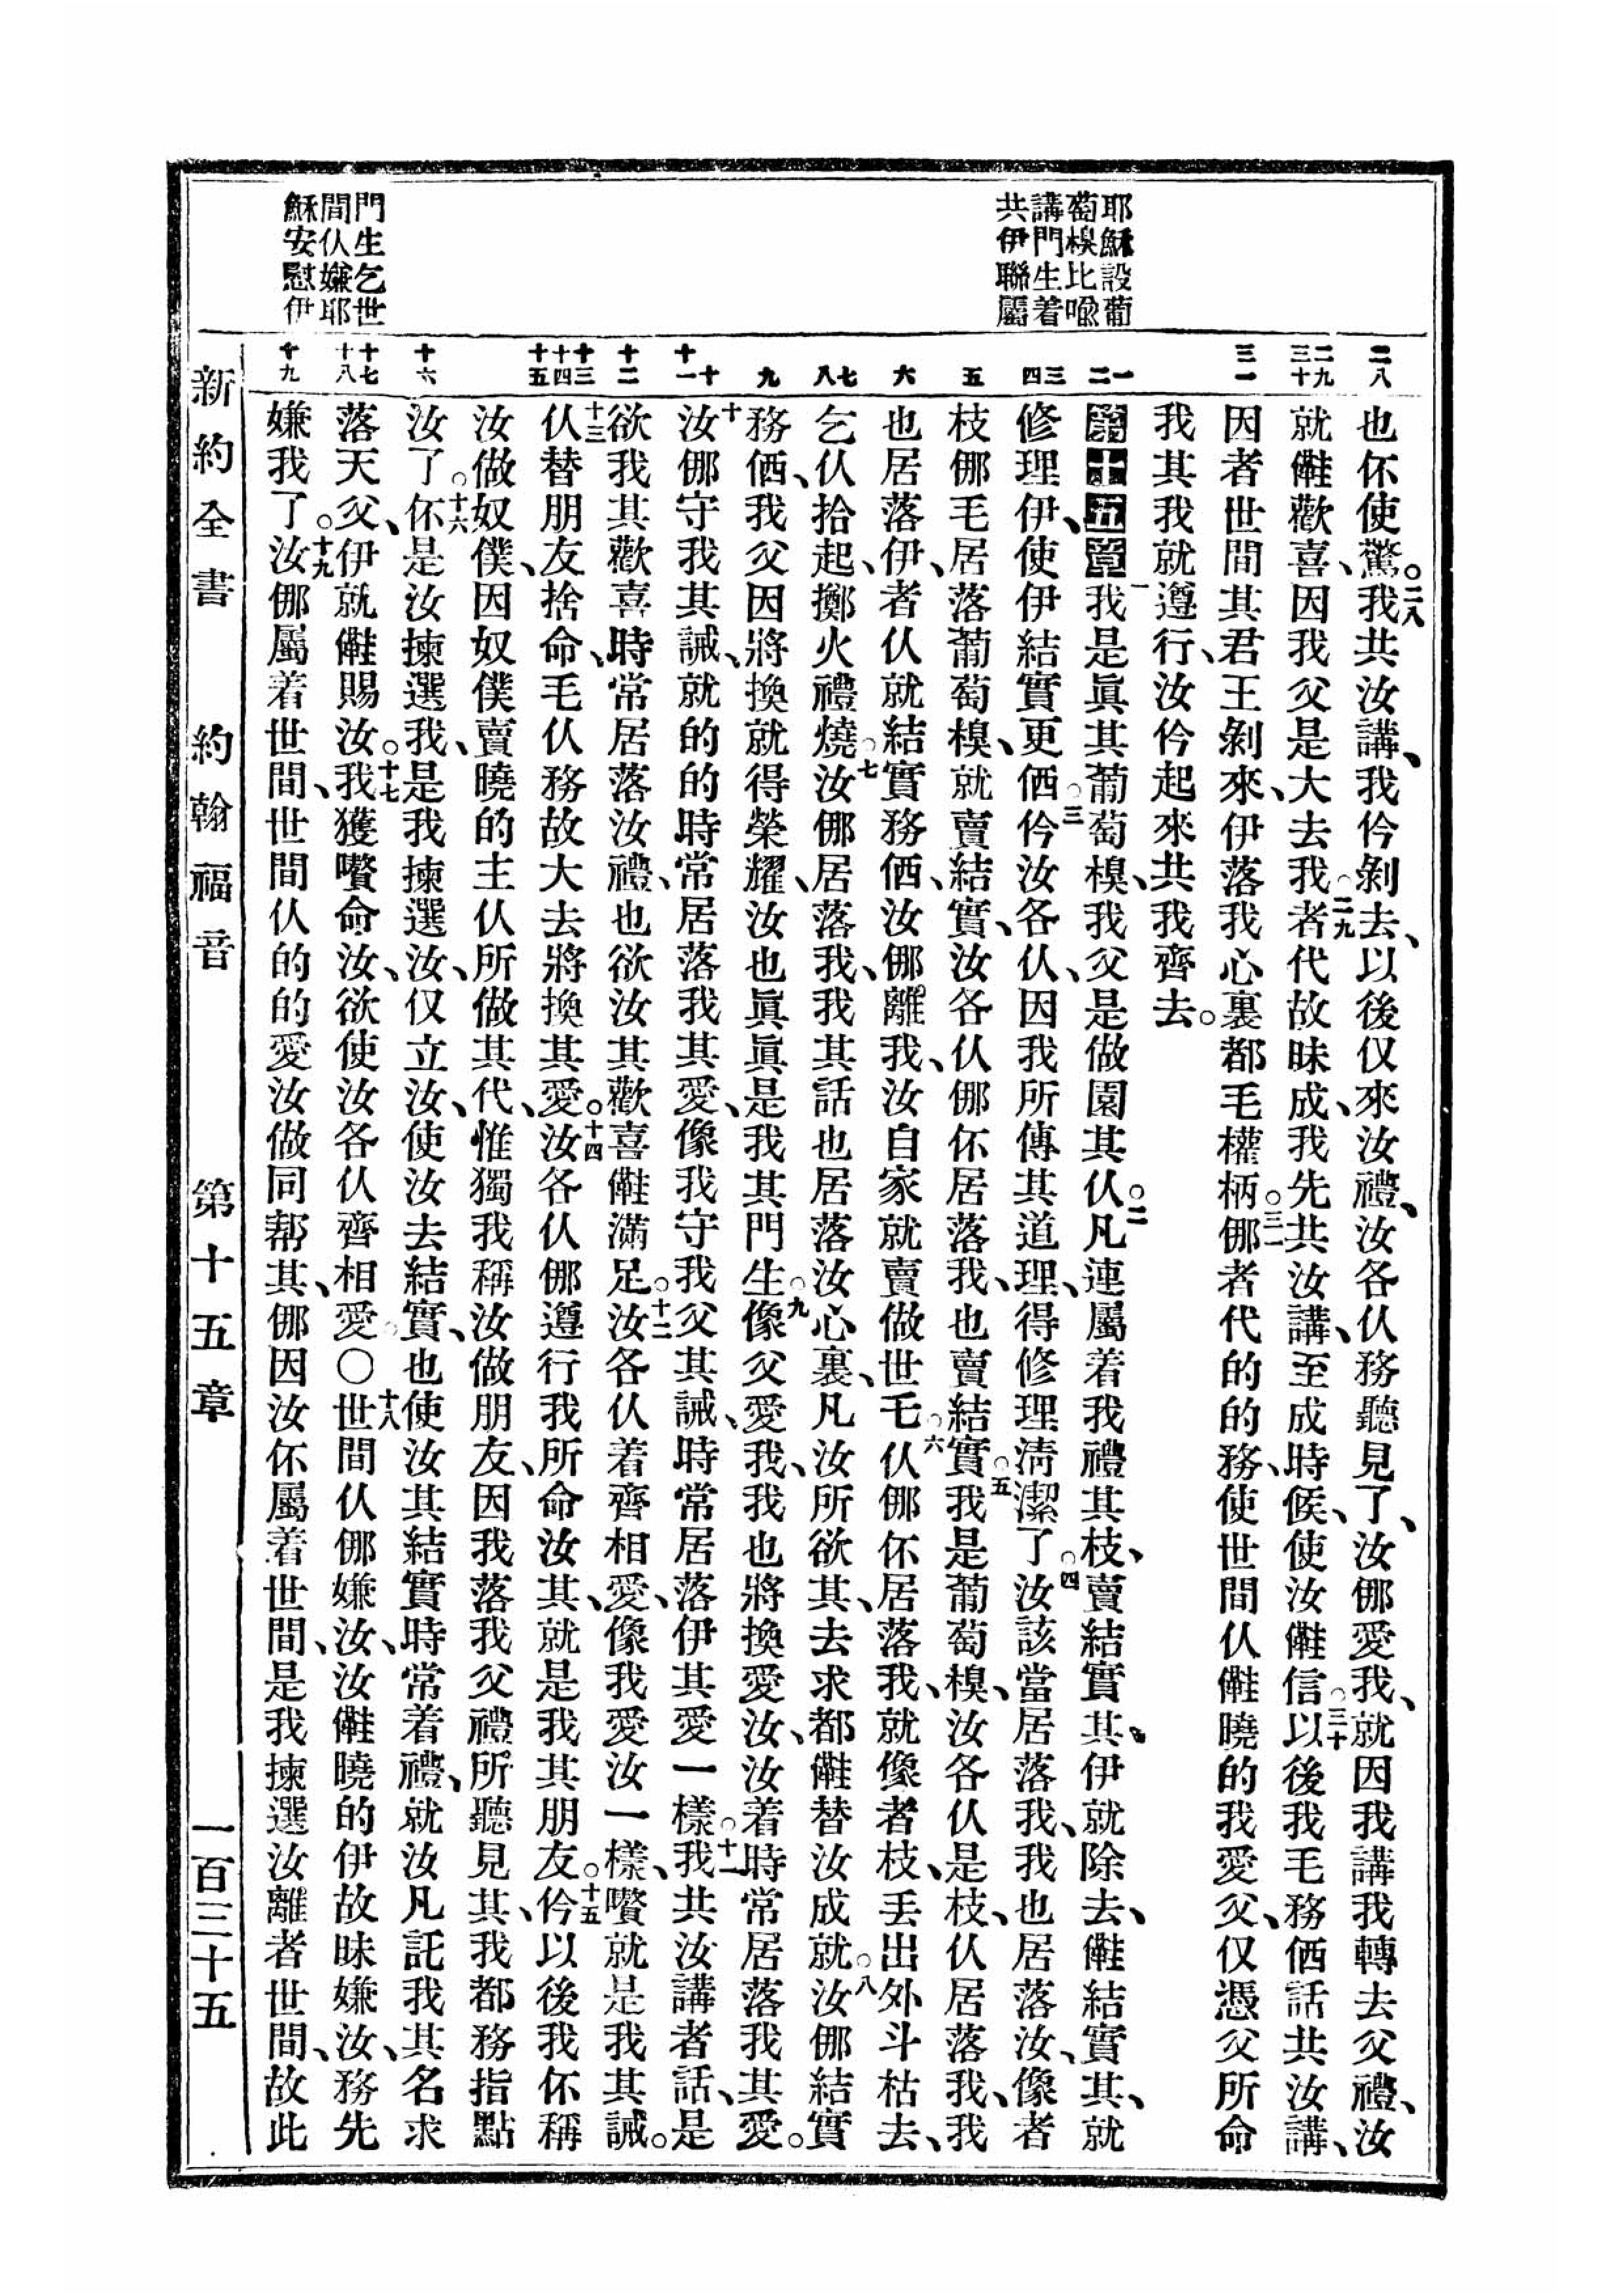 耶穌設葡
萄樹比喩
講門生着
共伊聯屬
門生乞世
間仏嫌耶
穌安慰伊
二八
二九
三十
三一
一
二
三
四
五
六
七
八
九
十
十一
十二
十三
十四
十五
十六
十七
十八
十九
也伓使驚。二八我共汝講、我仱剝去、以後仅來汝禮、汝各仏務聽見了、汝倻愛我、就因我講我轉去父禮、汝
就㒕歡喜、因我父是大去我。二九者代故昧成、我先共汝講、至成時候、使汝㒕信。三十以後我毛務価話共汝講、
因者世間其君王剝來、伊落我心裏都毛權柄。三一倻者代的的務、使世間仏㒕曉的我愛父、仅憑父所命
我其我就遵行、汝仱起來共我齊去。
第十五章一我是眞其葡萄樹、我父是做園其仏。二凡連屬着我禮其枝、賣結實其、伊就除去、㒕結實其、就
修理伊、使伊結實更価。三仱汝各仏、因我所傳其道理、得修理淸潔了。四汝該當居落我、我也居落汝、像者
枝倻毛居落葡萄樹、就賣結實、汝各仏倻伓居落我、也賣結實。五我是葡萄樹、汝各仏是枝、仏居落我、我
也居落伊、者仏就結實務価、汝倻離我、汝自家就賣做世毛。六仏倻伓居落我、就像者枝、丟出外斗枯去、
乞仏拾起、擲火禮燒。七汝倻居落我、我其話也居落汝心裏、凡汝所欲其、去求都㒕替汝成就。八汝倻結實
務価、我父因將換就得榮耀、汝也眞眞是我其門生。九像父愛我、我也將換愛汝、汝着時常居落我其愛。
十汝倻守我其誡、就的的時常居落我其愛、像我守我父其誡、時常居落伊其愛一樣。十一我共汝講者話、是
欲我其歡喜、時常居落汝禮、也欲汝其歡喜㒕滿足。十二汝各仏着齊相愛、像我愛汝一樣、嚽就是我其誡。
十三仏替朋友捨命、毛仏務故大去將換其愛。十四汝各仏倻遵行我所命汝其、就是我其朋友。十五仱以後我伓稱
汝做奴僕、因奴僕賣曉的主仏所做其代、惟獨我稱汝做朋友、因我落我父禮所聽見其、我都務指點
汝了。十六伓是汝揀選我、是我揀選汝、仅立汝、使汝去結實、也使汝其結實時常着禮、就汝凡託我其名求
落天父、伊就㒕賜汝。十七我獲嚽命汝、欲使汝各仏齊相愛。〇十八世間仏倻嫌汝、汝㒕曉的伊故昧嫌汝、務先
嫌我了。十九汝倻屬着世間、世間仏的的愛汝做同幫其、倻因汝伓屬着世間、是我揀選汝離者世間、故此
新約全書　約翰福音　第十五章　一百三十五